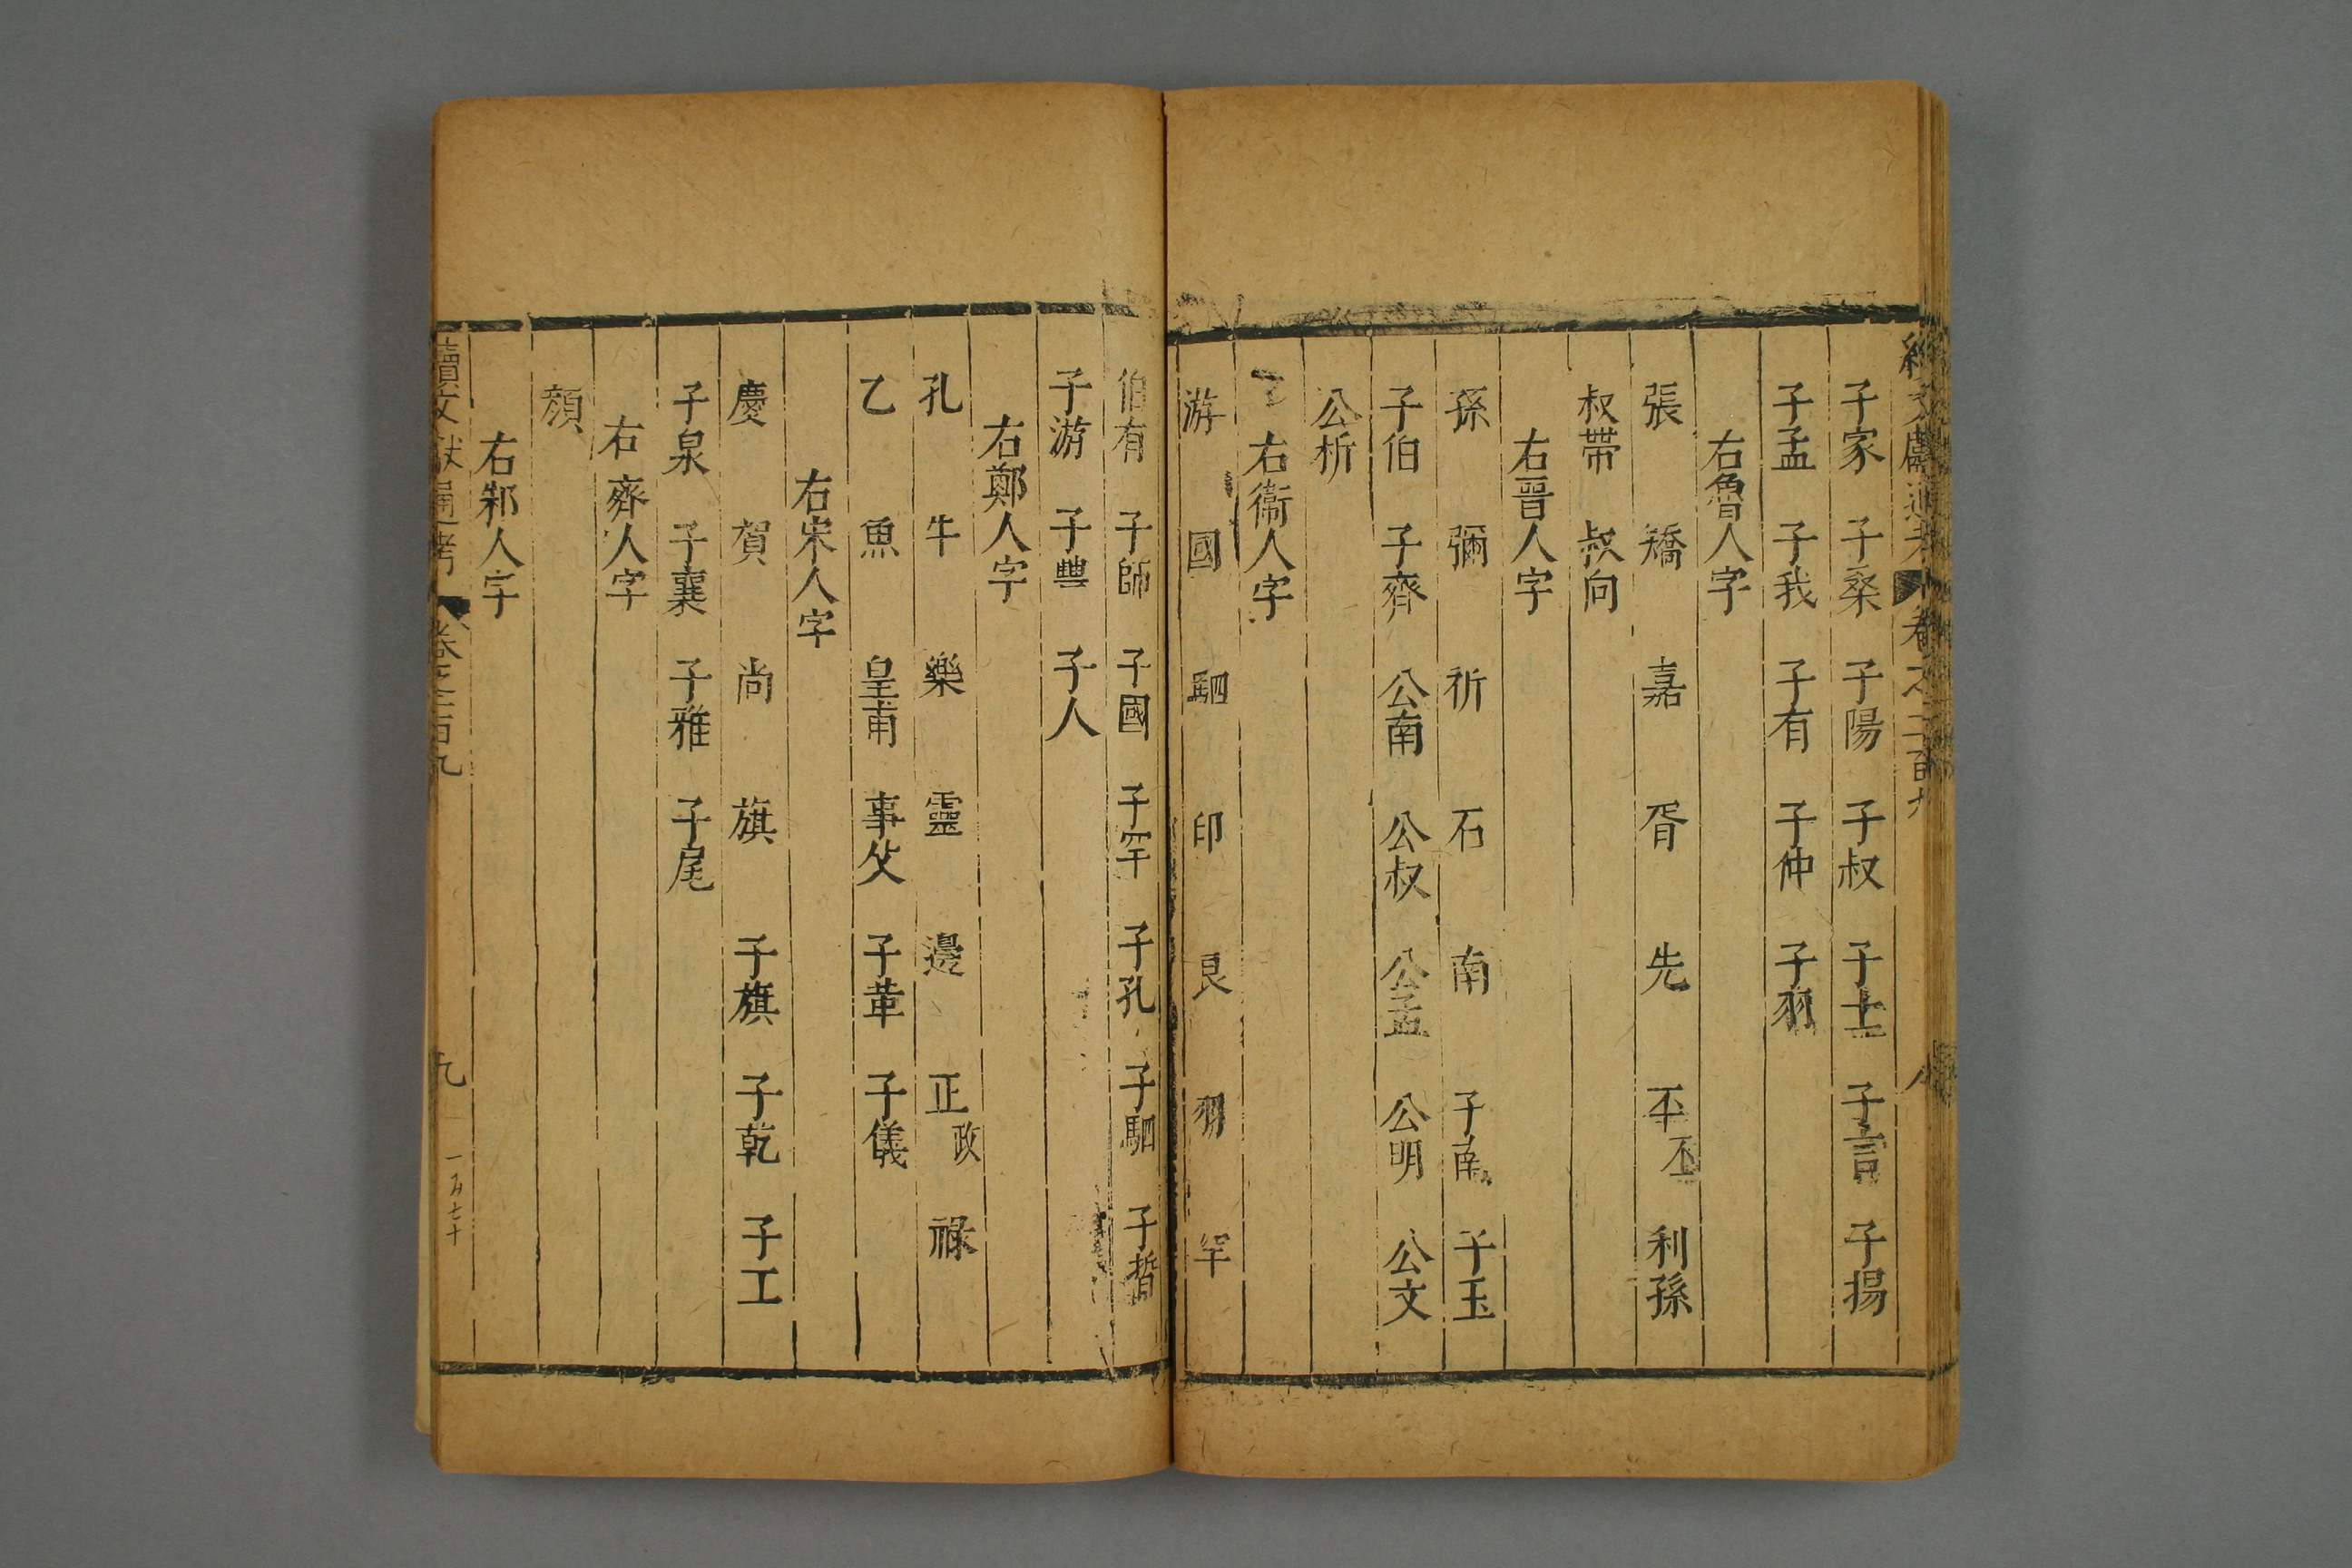 文獻通考 卷之二百九 八
子家 子桑 子陽 子叔 子士 子言 子揚
子孟 子我 子有 子仲 子羽
右魯人字
張 矯 嘉 胥 先 㔻丕 利孫
叔帶 叔向
右晉人字
孫 彌 祈 石 南 子南 子玉
子伯 子齊 公南 公叔 公孟 公明 公文
公析
右衞人字
游 國 駟 印 良 羽 罕
伯有 子師 子國 子罕 子孔 子駟 子晳
子游 子豐 子人
右鄭人字
孔 牛 樂 靈 邊 正政 祿
乙 魚 皇甫 事父 子革 子儀
右宋人字
慶 賀 尚 旗 子旗 子乾 子工
子泉 子襄 子雅 子尾
右齊人字
顔
右邾人字
續文獻通考 卷之二百九 九